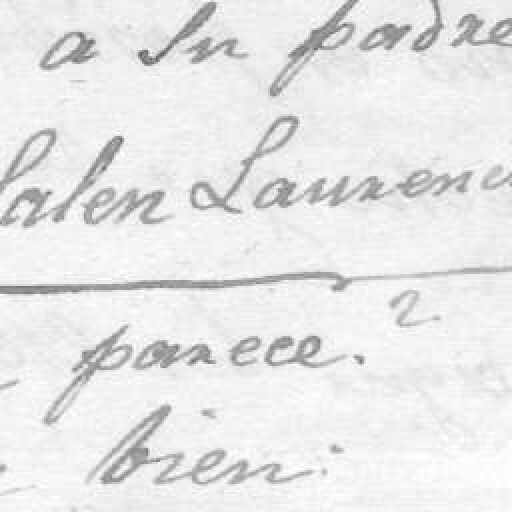 a Su padre
Salen Laurenci
parece. 2
bien: